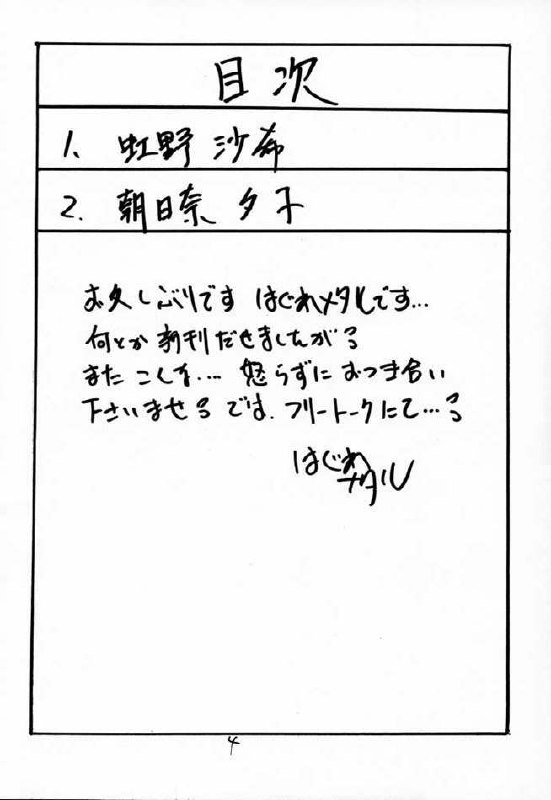 目次
1. 虹野 沙希
2. 朝日奈 夕子
お久しぶりです はぐれメタルです…
何とか新刊だせましたがろ
また こんな… 怒らずにおつき合い
下さいませろ です. フリートークにて…ろ
はぐれ
メタル
4